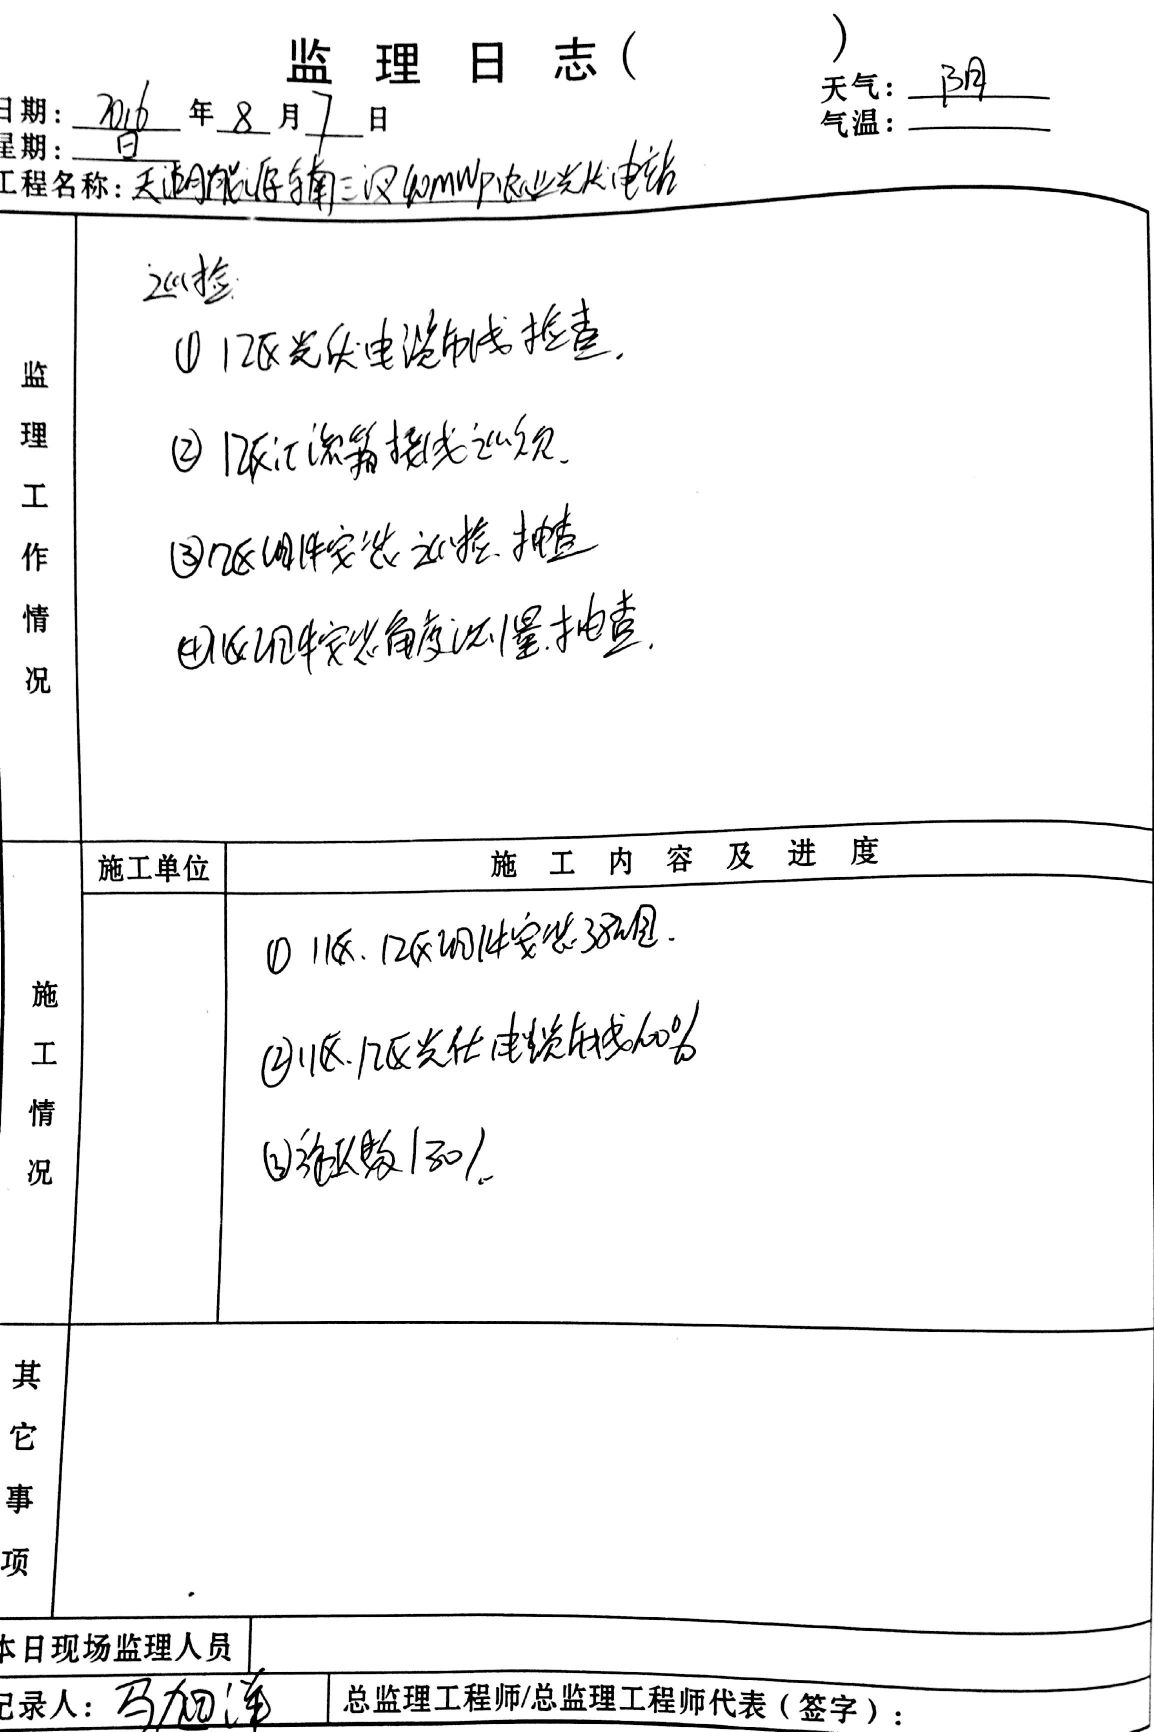 监理日志( )
日期: 2016 年 8 月 7 日
天气: 阴
星期: 日
气温:
工程名称: 天湖能源 南三汉40MWP农业光伏电站
监理工作情况
巡检:
① 12区光伏电缆布线检查.
② 12区汇流箱接线巡视.
③ 12区组件安装巡检.抽查
④ 11区组件安装角度测量.抽查.
施工单位
施工内容及进度
施工情况
① 11区.12区组件安装38组.
② 11区.12区光伏电缆布线60%
③ 人数130人.
其它事项
本日现场监理人员
记录人: 马旭洋
总监理工程师/总监理工程师代表(签字):